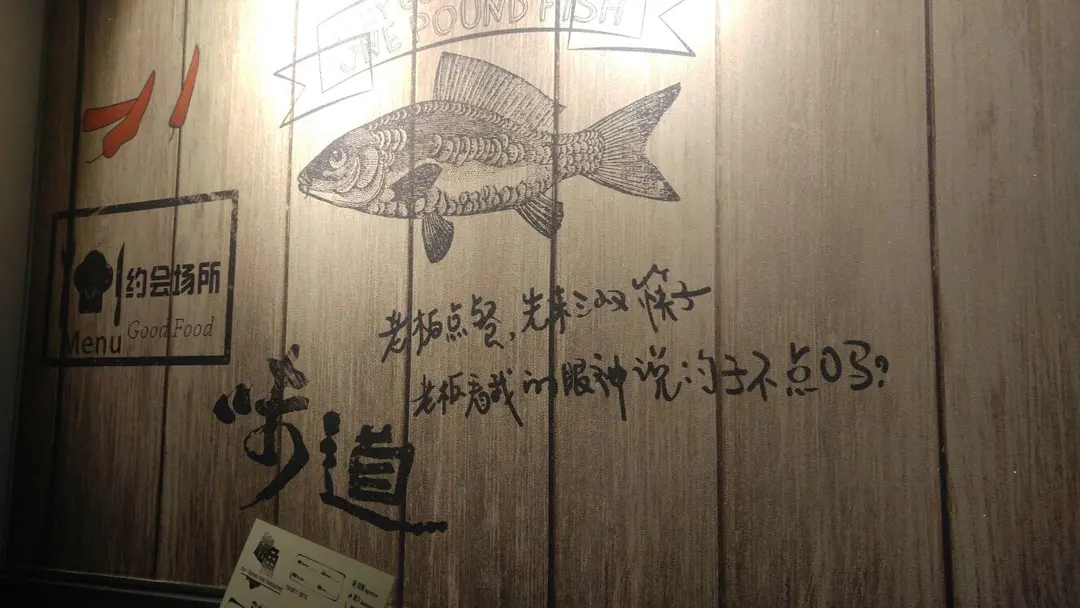 JNE POUND FISH
约会场所
Menu Good Food
老板点餐,先来三双筷子
老板看我的眼神说:勺子不点吗?
味道